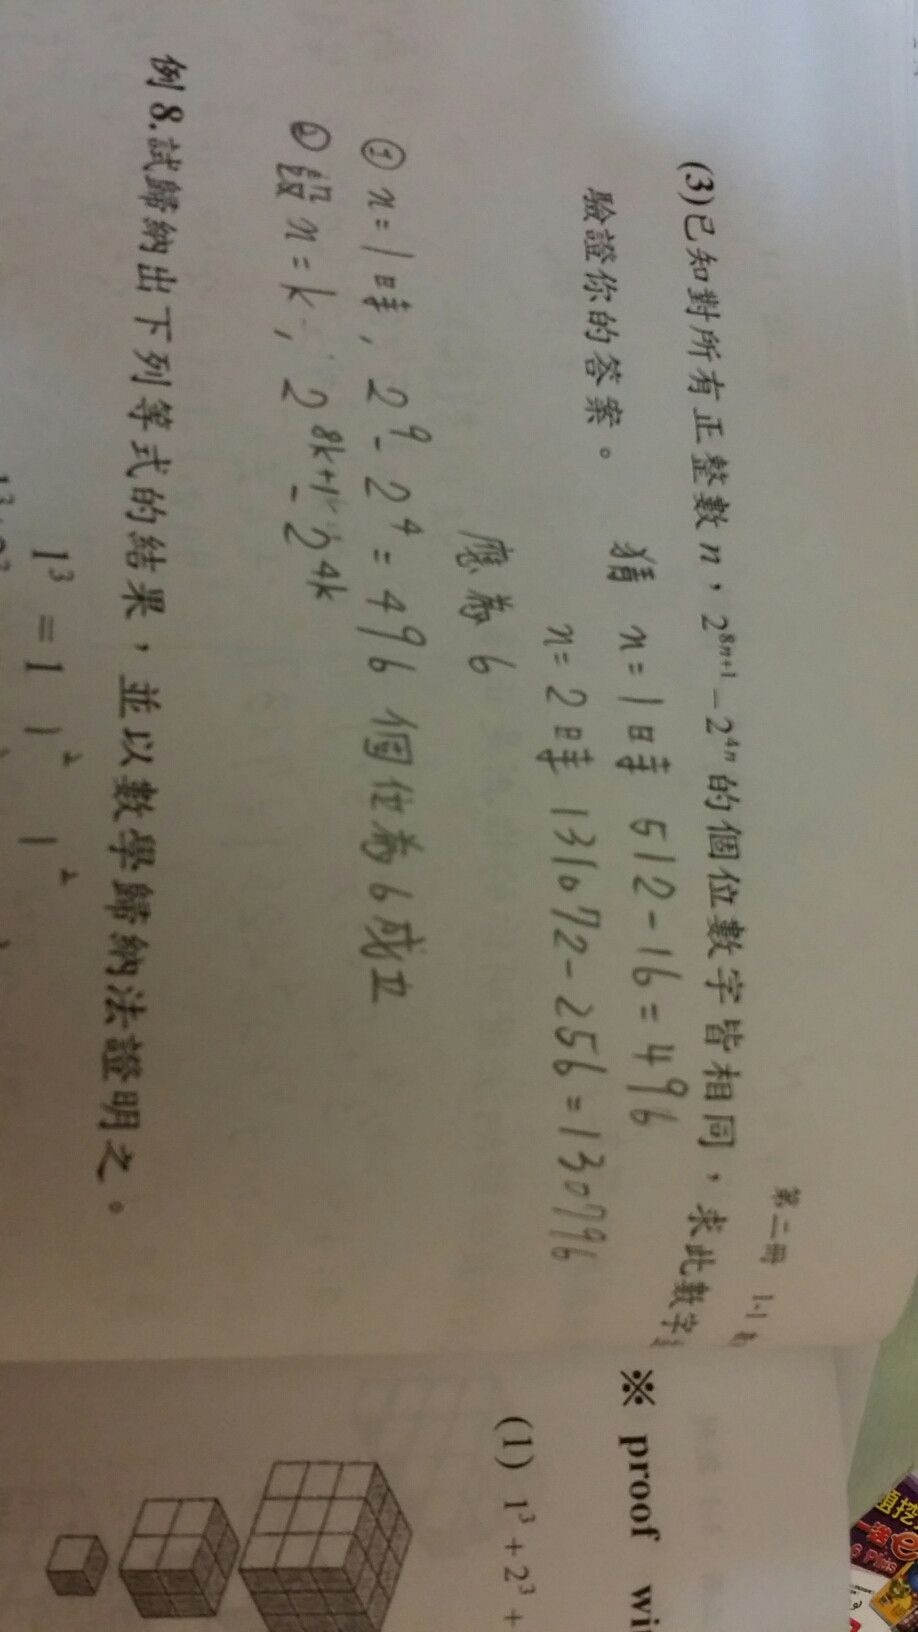 第二冊 1-1
(3)已知對所有正整數 n，2^{8n+1}-2^{4n} 的個位數字皆相同，求此數字
驗證你的答案。
猜 n=1時 512-16=496
n=2時 131072-256=130796
應為 6
① n=1時, 2^9-2^4=496 個位為6成立
② 設 n=k, 2^{8k+1}-2^{4k}
例 8.試歸納出下列等式的結果，並以數學歸納法證明之。
1^3 = 1 1^2 1^2
※ proof wi
(1) 1^3 + 2^3 +